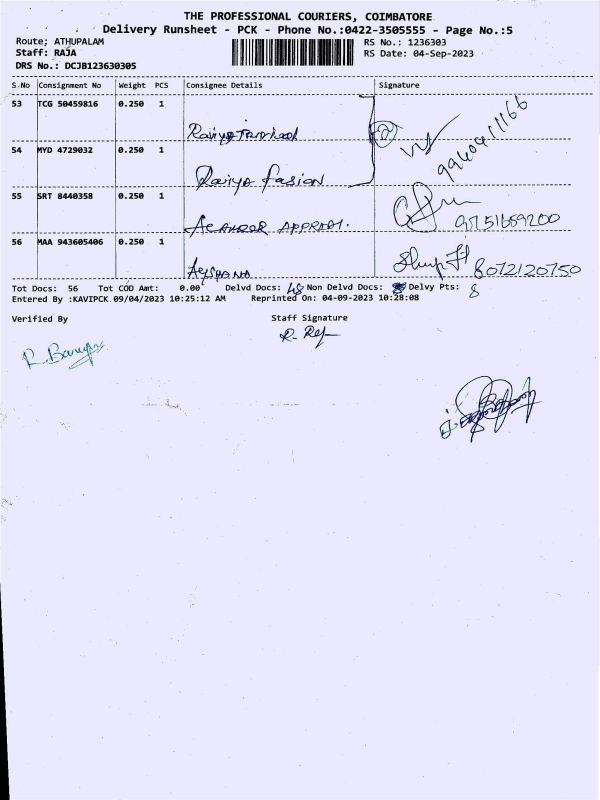 THE PROFESSIONAL COURIERS, COIMBATORE
Delivery Runsheet - PCK - Phone No.:0422-3505555 - Page No.:5
Route; ATHUPALAM RS No.: 1236303
Staff: RAJA RS Date: 04-Sep-2023
DRS No.: DCJB123630305
S.No Consignment No Weight PCS Consignee Details Signature
53 TCG 50459816 0.250 1
54 MYD 4729032 0.250 1
Raiya fasion
55 SRT 8440358 0.250 1
56 MAA 943605406 0.250 1
8072120750
Tot Docs: 56 Tot COD Amt: 0.00 Delvd Docs: 48 Non Delvd Docs: 8 Delvy Pts: 8
Entered By :KAVIPCK 09/04/2023 10:25:12 AM Reprinted On: 04-09-2023 10:28:08
Verified By Staff Signature